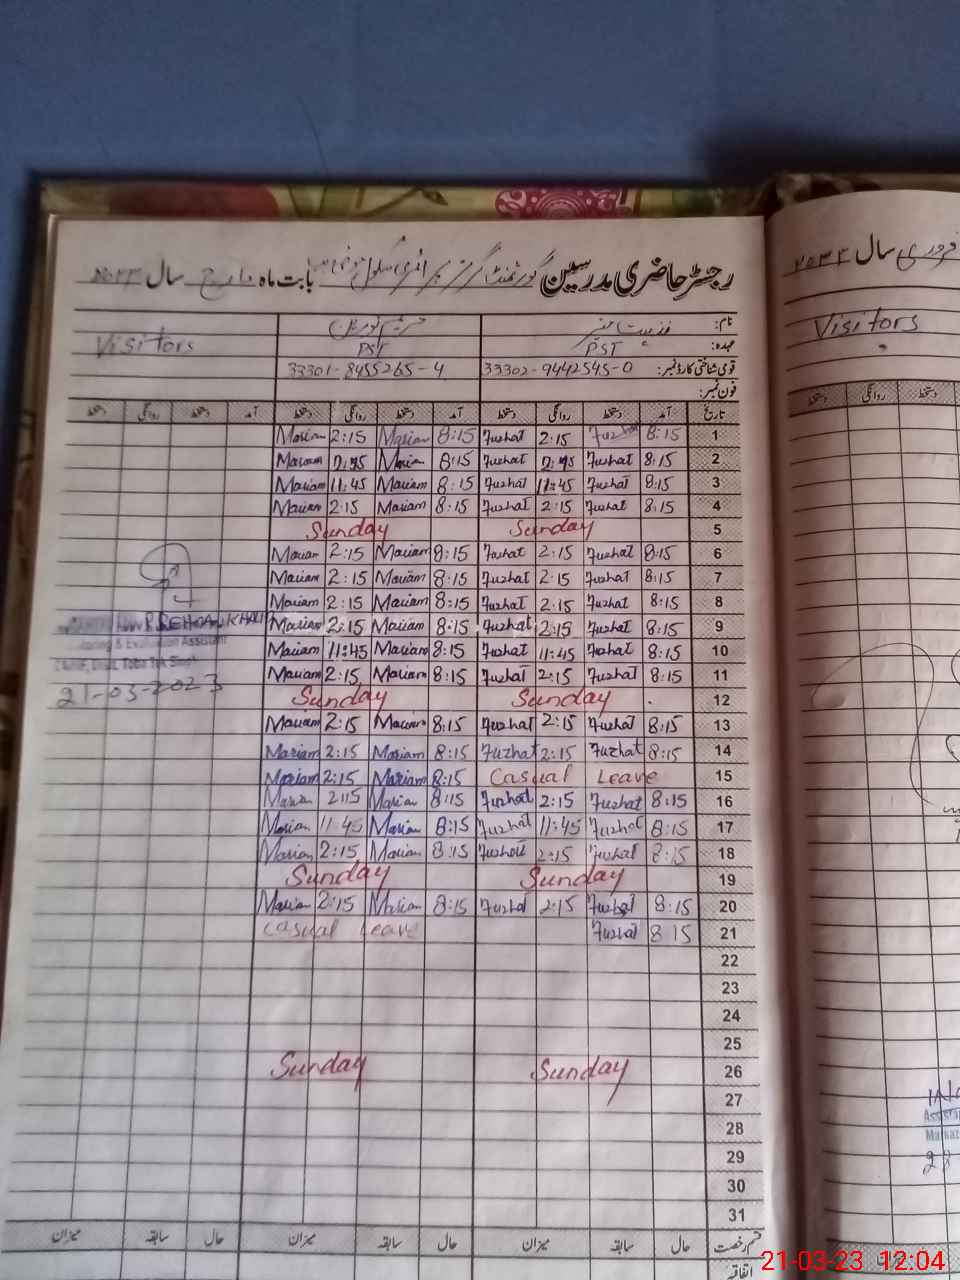 رجسٹر حاضری مدرسین گورنمنٹ گرلز پرائمری سکول بابت ماہ مارچ سال ۲۰۲۳
نام:
Visitors
عہدہ: PST PST
قومی شناختی کارڈ نمبر: 33302-9442545-0 33301-8455265-4
فون نمبر:
تاریخ آمد دستخط روانگی دستخط آمد دستخط روانگی دستخط آمد دستخط روانگی دستخط
Mariam 2:15 Mariam 8:15 Fuzhat 2:15 Fuzhat 8:15 1
Mariam Mariam 8:15 Fuzhat Fuzhat 8:15 2
Mariam 11:45 Mariam 8:15 Fuzhat 11:45 Fuzhat 8:15 3
Mariam 2:15 Mariam 8:15 Fuzhat 2:15 Fuzhat 8:15 4
Sunday Sunday 5
Mariam 2:15 Mariam 8:15 Fuzhat 2:15 Fuzhat 8:15 6
Mariam 2:15 Mariam 8:15 Fuzhat 2:15 Fuzhat 8:15 7
Mariam 2:15 Mariam 8:15 Fuzhat 2:15 Fuzhat 8:15 8
Mariam 2:15 Mariam 8:15 Fuzhat 2:15 Fuzhat 8:15 9
Mariam 11:45 Mariam 8:15 Fuzhat 11:45 Fuzhat 8:15 10
Mariam 2:15 Mariam 8:15 Fuzhat 2:15 Fuzhat 8:15 11
Sunday Sunday 12
Mariam 2:15 Mariam 8:15 Fuzhat 2:15 Fuzhat 8:15 13
Mariam 2:15 Mariam 8:15 Fuzhat 2:15 Fuzhat 8:15 14
Mariam 2:15 Mariam 8:15 Casual Leave 15
Mariam 2:15 Mariam 8:15 Fuzhat 2:15 Fuzhat 8:15 16
Mariam 11:45 Mariam 8:15 Fuzhat 11:45 Fuzhat 8:15 17
Mariam 2:15 Mariam 8:15 Fuzhat 2:15 Fuzhat 8:15 18
Sunday Sunday 19
Mariam 2:15 Mariam 8:15 Fuzhat 2:15 Fuzhat 8:15 20
Casual Leave Fuzhat 8 15 21
22
23
24
25
Sunday Sunday 26
27
28
29
30
31
قسم رخصت حال سابقہ میزان حال سابقہ میزان حال سابقہ میزان
اتفاقیہ
& Evaluation Assistant
Toba Tek Singh
21-03-2023
فروری سال ۲۰۲۳
Visitors
دستخط روانگی دستخط
28
21-03-23 12:04